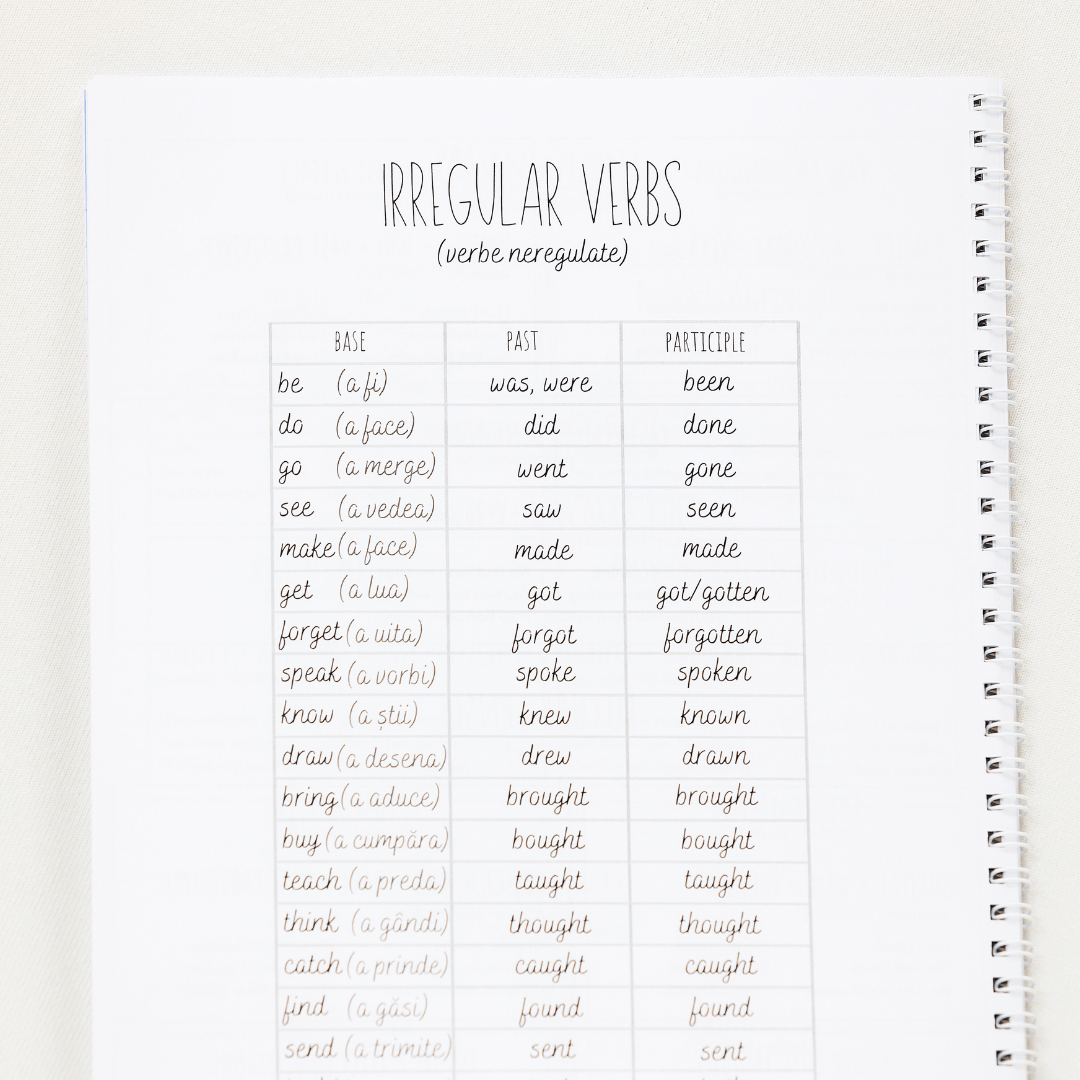 IRREGULAR VERBS
(verbe neregulate)
BASE PAST PARTICIPLE
be (a fi) was, were been
do (a face) did done
go (a merge) went gone
see (a vedea) saw seen
make (a face) made made
get (a lua) got got/gotten
forget (a uita) forgot forgotten
speak (a vorbi) spoke spoken
know (a știi) knew known
draw (a desena) drew drawn
bring (a aduce) brought brought
buy (a cumpăra) bought bought
teach (a preda) taught taught
think (a gândi) thought thought
catch (a prinde) caught caught
find (a găsi) found found
send (a trimite) sent sent